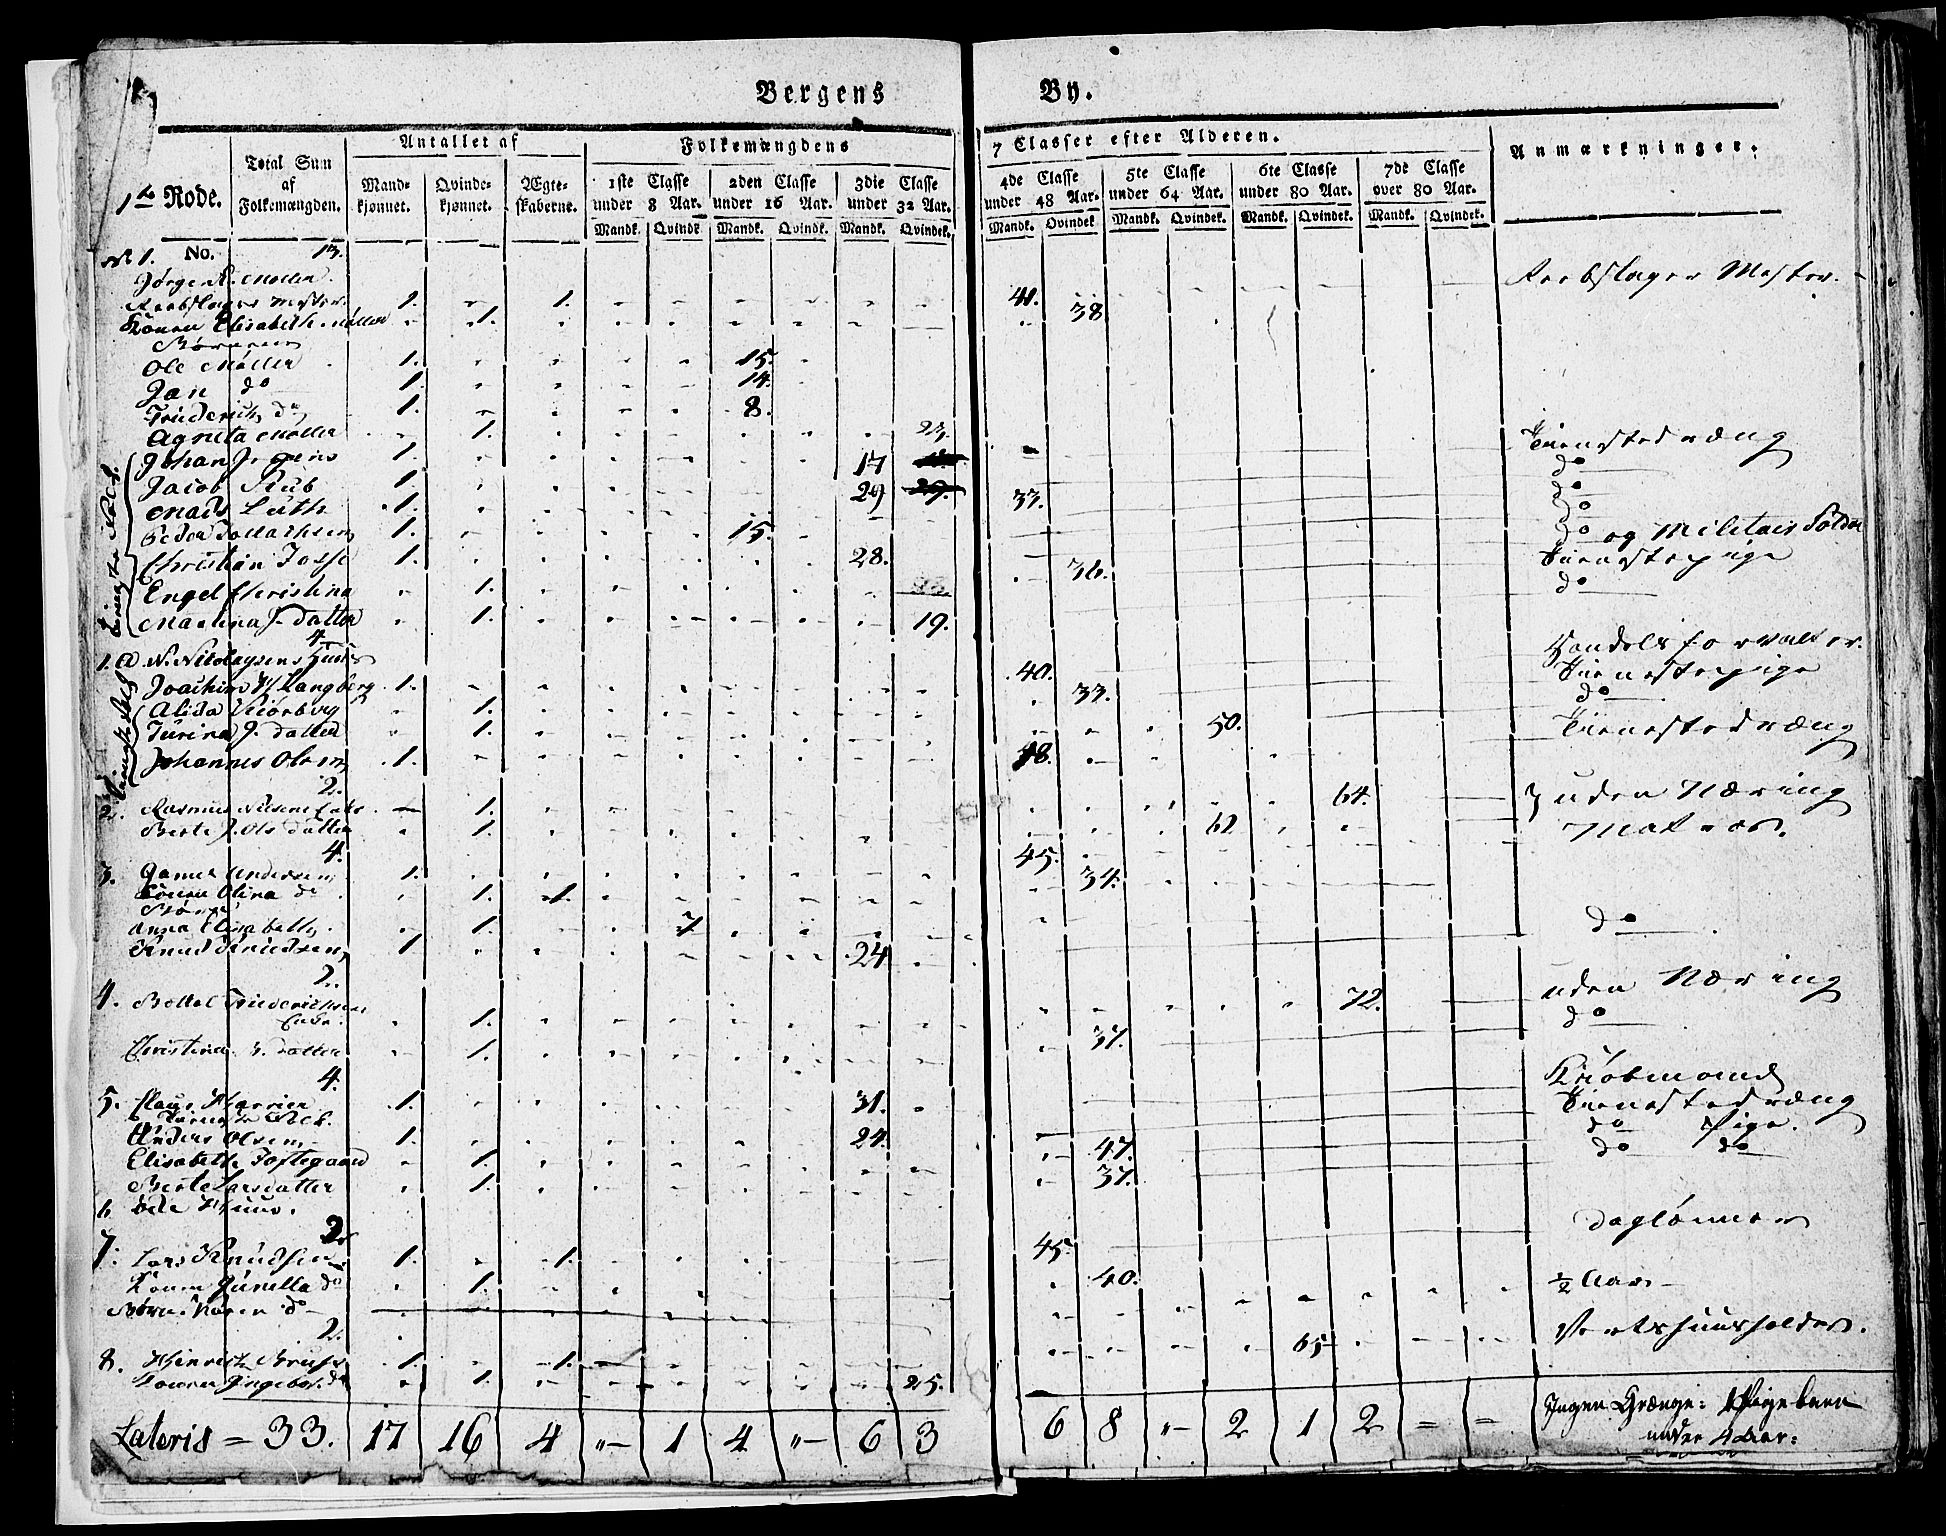 Bergens By.
1te Rode.
Total Sum af Folkemængden.
Antallet af
Mandkjønnet. Qvindekjønnet. Ægteskaberne.
Folkemængdens 7 Classer efter Alderen.
1ste Classe under 8 Aar. 2den Classe under 16 Aar. 3die Classe under 32 Aar. 4de Classe under 48 Aar. 5te Classe under 64 Aar. 6te Classe under 80 Aar. 7de Classe over 80 Aar.
Mandk. Qvindk. Mandk. Qvindk. Mandk. Qvindek. Mandk. Qvindek. Mandk. Qvindek. Mandk. Qvindek. Mandk. Qvindek.
Anmærkninger.
No 1. No. 13.
Jørgen Møller
Reebslager Mester. 1. 1. 41. Reebslager Mester.
Konen Elisabeth Møller 1. 38
Børnene
Ole Møller 1. 15.
Jan do 1. 14.
Friderich do 1. 8.
Agneta Møller 1. 23.
Johan 1. 17 Tienestedræng
Jacob 1. 29 do
Mads Lüth 1. 33. do
Peder 1. 15. do
Christian 1. 28. do og Militair
Engel Christina 1. 36. Tienestepige
Martina J. Datter 1. 19. do
4
1. a N. Nicolaysens Huus
Joachim Langberg 1. 40. Handels forvalter.
Alida 1. 33. Tienestepige
J. Datter 1. 50. do
Johannes Olsen 1. 48. Tienestedræng
2.
2. Rasmus Nilsens Enke 1. 64. uden Næring
Berte J. Ols Datter 1. 62
4.
3. Andersen 1. 45. Matros.
Konen Olina do 1. 1. 34.
Børn
Anna Elisabeth 1. 7
Knud Knudsen 1 24 do
2.
4. Friderichsens
Enke. 1. 72. uden Næring
Christina Datter 1. 37. do
4.
5. Claus 1. 31. Kiøbmand
Tieneste Folk.
Anders Olsen 1. 24. Tienestedræng
Elisabeth 1. 47. do Pige.
Berte Larsdatter 1. 37. do do
6.
2
7. Lars Knudsen 1. 1. 45 Daglønner
Konen Gunella do 1. 40.
Børn: Karen do ½ Aar
2.
8. Hinrich 1. 1. 65 Vertshuusholder.
Konen Ingebor. do 1. 25.
Lateris = 33. 17 16 4 "- 1 4 "- 6 3 6 8 "- 2 1 2 = = Ingen Drænge: 1 Pige barn
under 4 Aar: